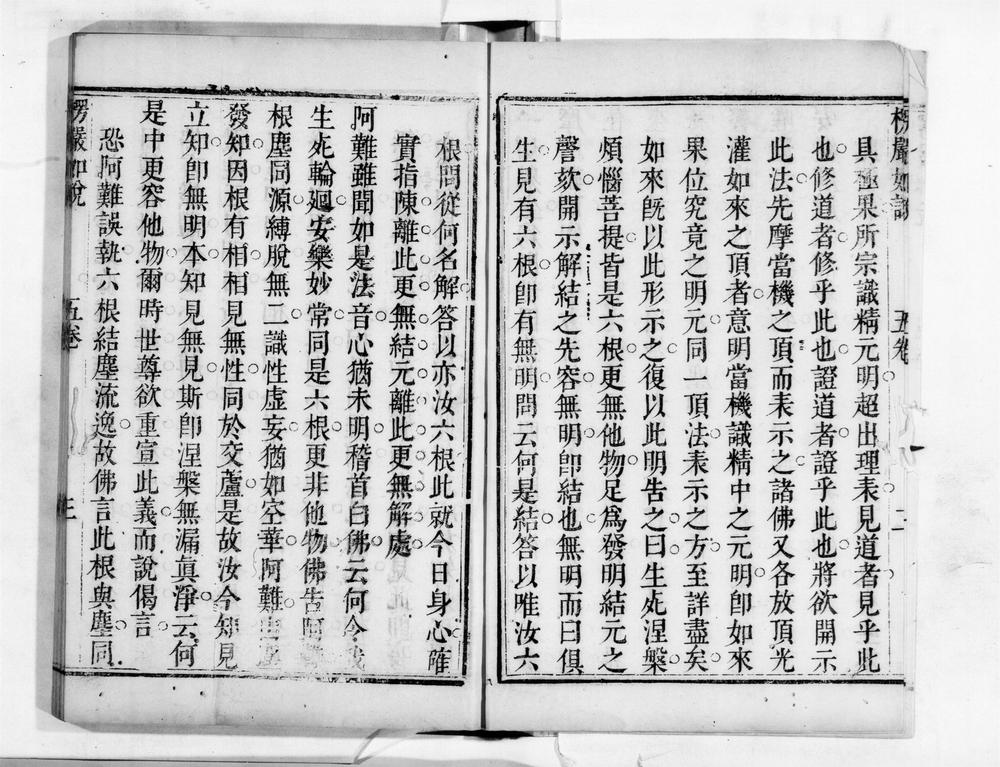 楞嚴如說 五卷 二
具極果所宗識精元明超出理表見道者見乎此
也修道者修乎此也證道者證乎此也將欲開示
此法先摩當機之頂而表示之諸佛又各放頂光
灌如來之頂者意明當機識精中之元明卽如來
果位究竟之明元同一頂法表示之方至詳盡矣
如來旣以此形示之復以此明告之曰生死涅槃
煩惱菩提皆是六根更無他物足爲發明結元之
謦欬開示解結之先容無明卽結也無明而曰俱
生見有六根卽有無明問云何是結答以唯汝六
根問從何名解答以亦汝六根此就今日身心確
實指陳離此更無結元離此更無解處
阿難雖聞如是法音心猶未明稽首白佛云何令我
生死輪廻安樂妙常同是六根更非他物佛告阿難
根塵同源縛脫無二識性虛妄猶如空華阿難由塵
發知因根有相相見無性同於交蘆是故汝今知見
立知卽無明本知見無見斯卽涅槃無漏眞淨云何
是中更容他物爾時世尊欲重宣此義而說偈言
恐阿難誤執六根結塵流逸故佛言此根與塵同
楞嚴如說 五卷 三